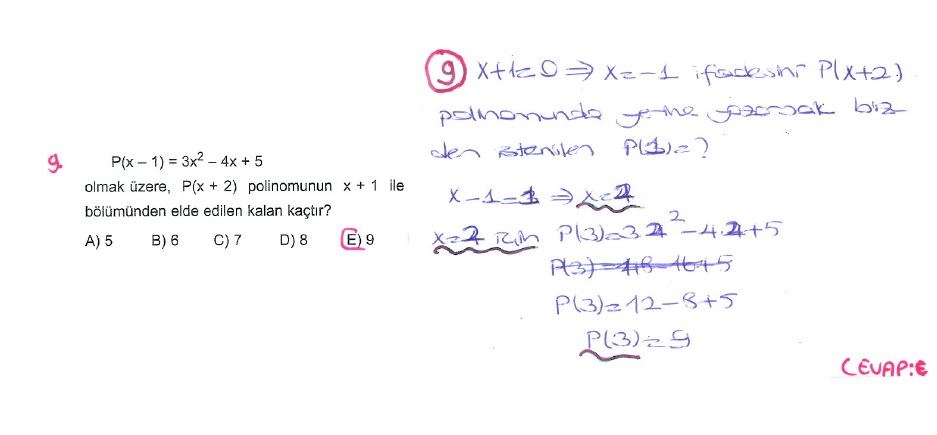 9
P(x – 1) = 3x² – 4x + 5
olmak üzere, P(x + 2) polinomunun x + 1 ile
bölümünden elde edilen kalan kaçtır?
A) 5 B) 6 C) 7 D) 8 E) 9
9) x+1=0 ⇒ x=-1 ifadesini P(x+2)
polinomunda yerine yazarsak biz
den istenilen P(1)=?
x-1=1 ⇒ x=2
x=2 için P(3)=3.2²-4.2+5
P(3)=48-16+5
P(3)=12-8+5
P(3)=9
CEVAP:E